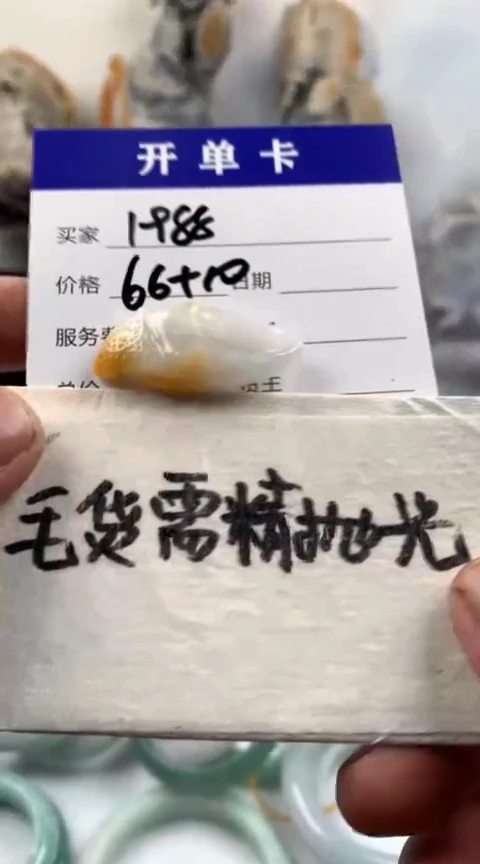 开单卡
买家 1988
价格 66+10 日期
服务费
总价
毛货需精抛光